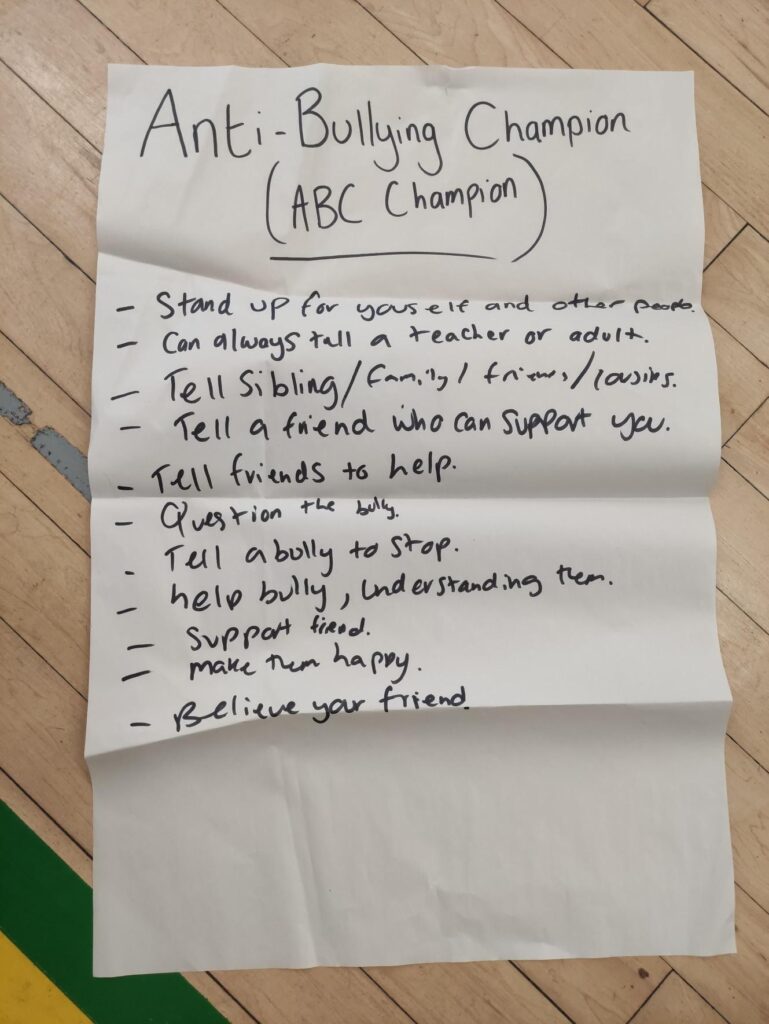 Anti-Bullying Champion
(ABC Champion)
- Stand up for youself and other people.
- Can always tell a teacher or adult.
- Tell Sibling/family/friends/cousins.
- Tell a friend who can support you.
- Tell friends to help.
- Question the bully.
- Tell a bully to stop.
- help bully, understanding them.
- support friend.
- make them happy.
- Believe your friend.